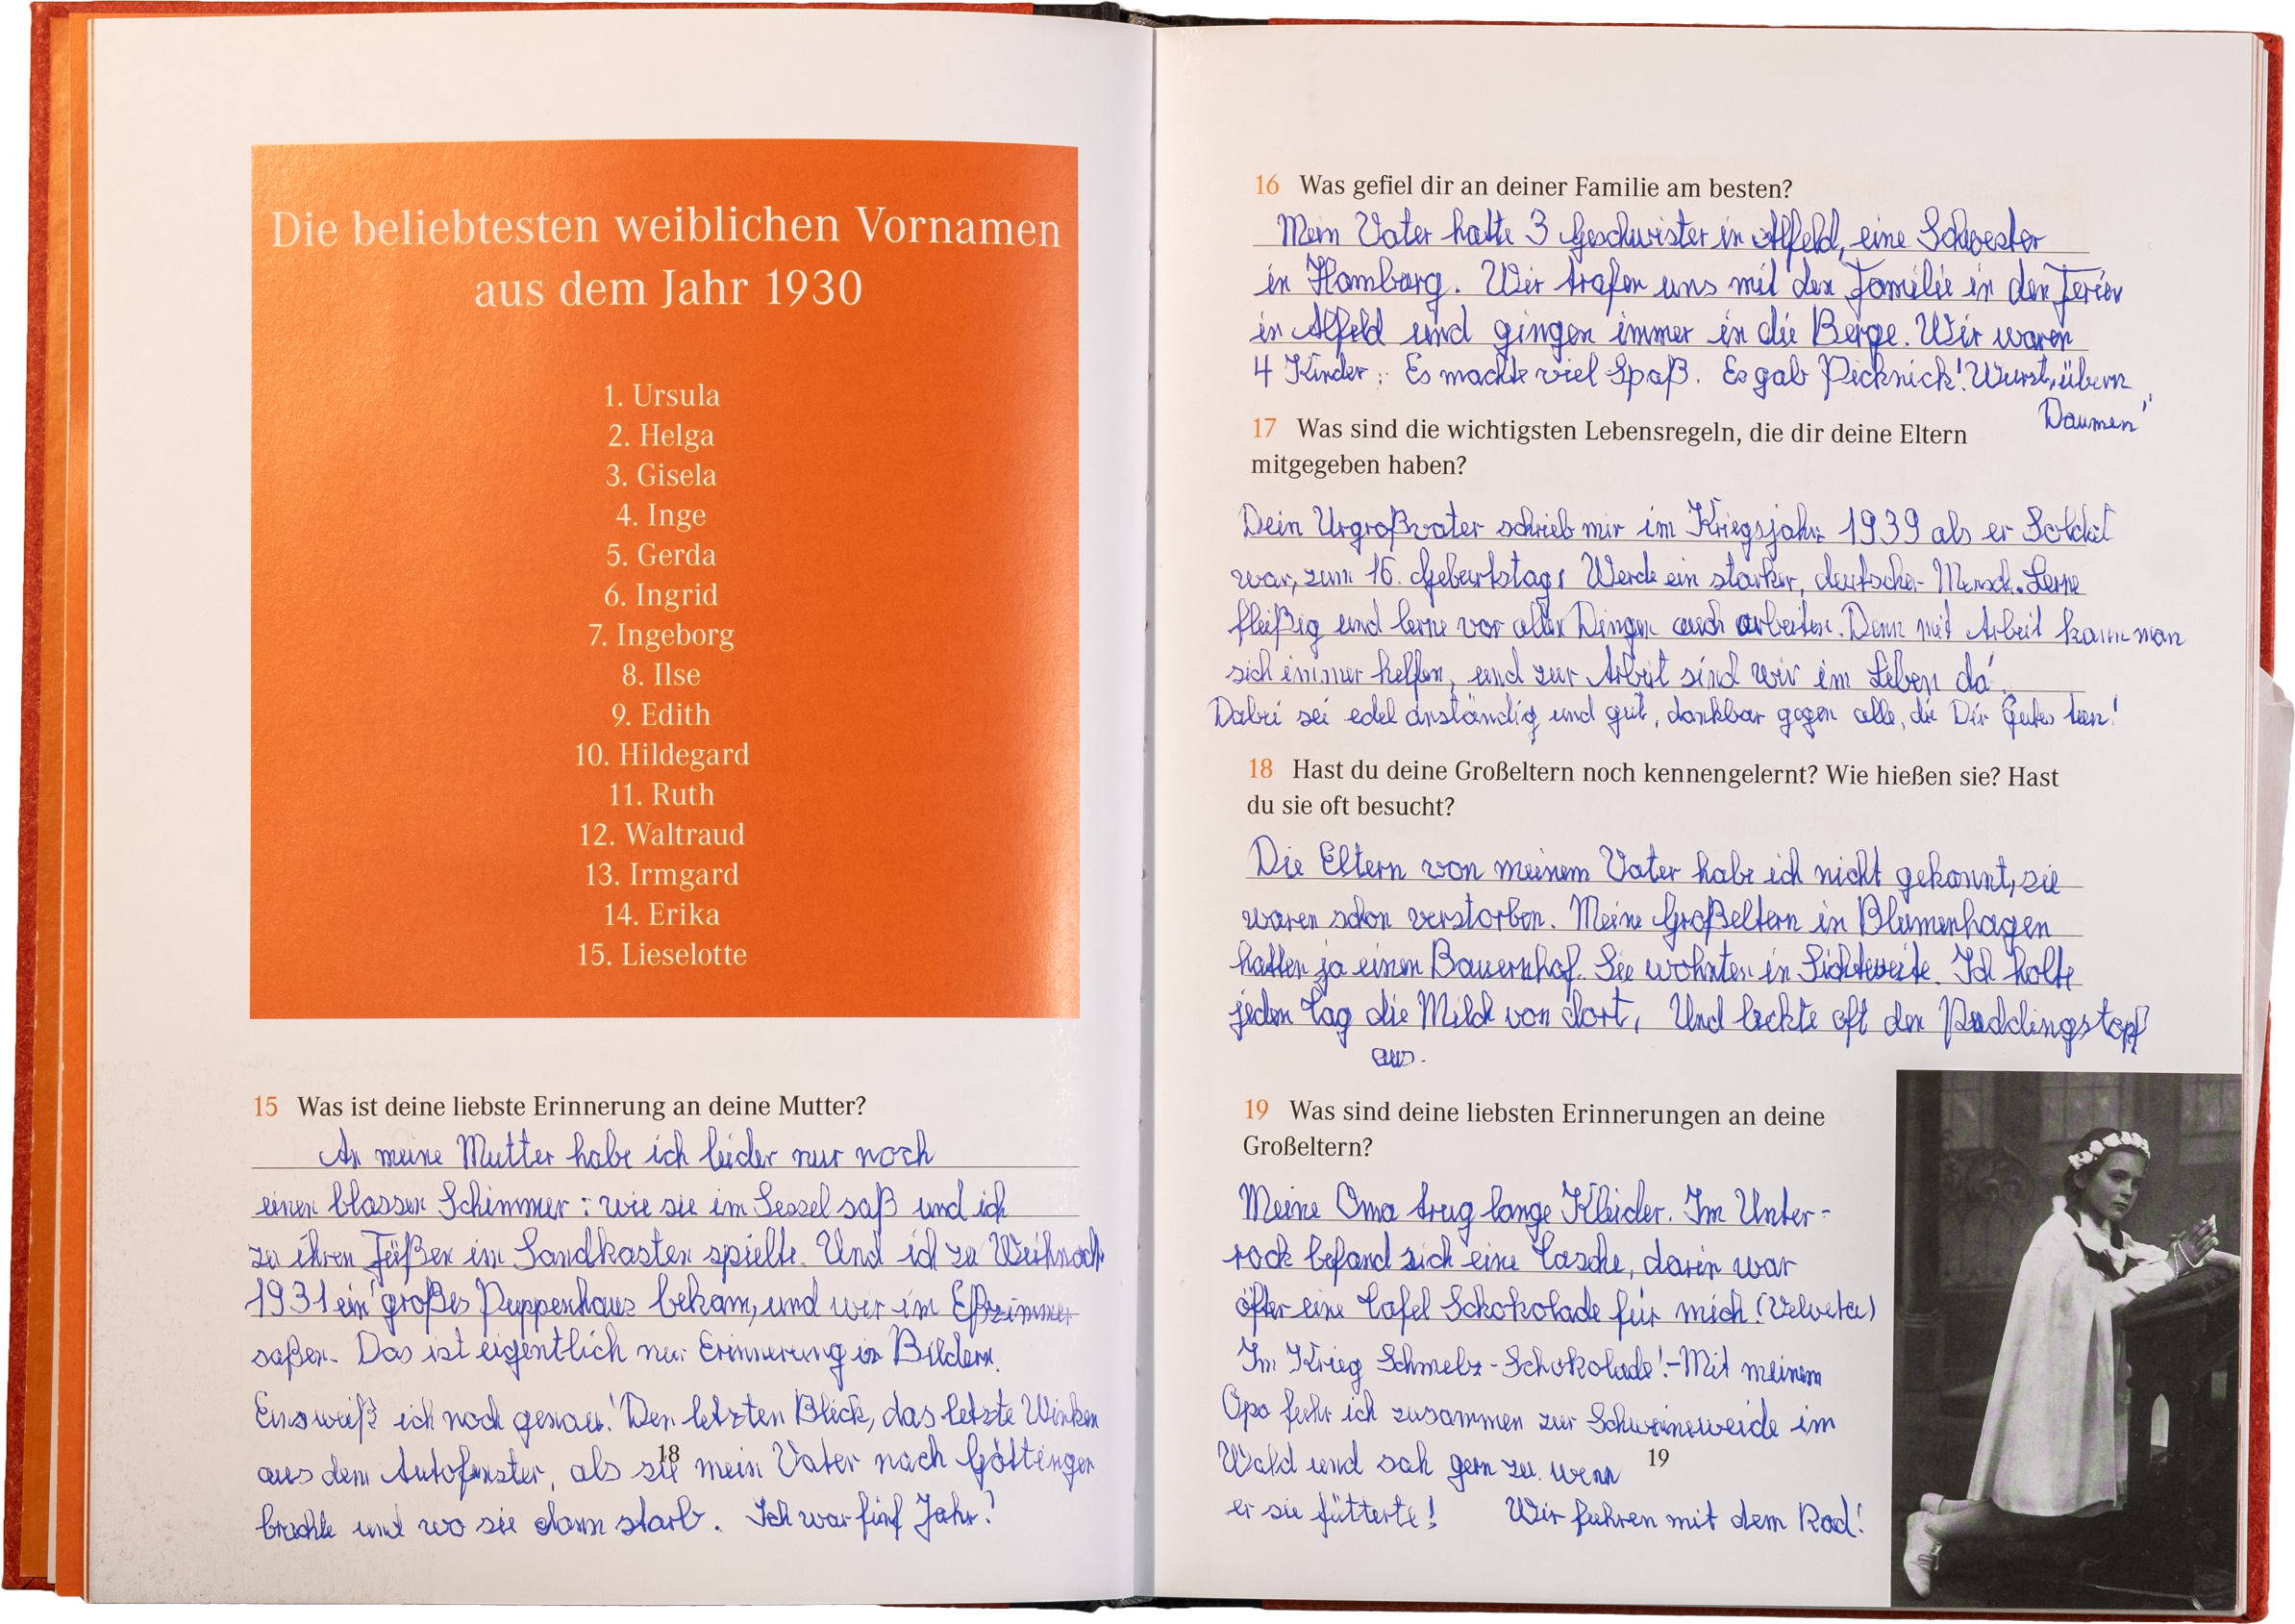 Die beliebtesten weiblichen Vornamen
aus dem Jahr 1930
1. Ursula
2. Helga
3. Gisela
4. Inge
5. Gerda
6. Ingrid
7. Ingeborg
8. Ilse
9. Edith
10. Hildegard
11. Ruth
12. Waltraud
13. Irmgard
14. Erika
15. Lieselotte
15 Was ist deine liebste Erinnerung an deine Mutter?
An meine Mutter habe ich leider nur noch
einen blassen Schimmer: wie sie im Sessel saß und ich
zu ihren Füßen im Sandkasten spielte. Und ich zu Weihnach
1931 ein großes Puppenhaus bekam, und wir im Eßzimmer
saßen. Das ist eigentlich nur Erinnerung in Bildern.
Eins weiß ich noch genau! Den letzten Blick, das letzte Winken
aus dem Autofenster, als sie mein Vater nach Göttingen
brachte und wo sie dann starb. Ich war fünf Jahr!
18
16 Was gefiel dir an deiner Familie am besten?
Mein Vater hatte 3 Geschwister in Alfeld, eine Schwester
in Hamburg. Wir trafen uns mit der Familie in den Ferien
in Alfeld und gingen immer in die Berge. Wir waren
4 Kinder. Es machte viel Spaß. Es gab Picknick! Wurst, übern
Daumen"
17 Was sind die wichtigsten Lebensregeln, die dir deine Eltern
mitgegeben haben?
Dein Urgroßvater schrieb mir im Kriegsjahr 1939 als er Soldat
war, zum 16. Geburtstag: Werde ein starker, deutscher Mensch. Lerne
fleißig und lerne vor allen Dingen auch arbeiten. Denn mit Arbeit kann man
sich immer helfen, und zur Arbeit sind wir im Leben da
Dabei sei edel anständig und gut, dankbar gegen alle, die Dir Gutes tun!
18 Hast du deine Großeltern noch kennengelernt? Wie hießen sie? Hast
du sie oft besucht?
Die Eltern von meinem Vater habe ich nicht gekannt, sie
waren schon verstorben. Meine Großeltern in Blumenhagen
hatten ja einen Bauernhof. Sie wohnten in Sichtweite. Ich holte
jeden Tag die Milch von dort, Und leckte oft den Puddingstopf
aus.
19 Was sind deine liebsten Erinnerungen an deine
Großeltern?
Meine Oma trug lange Kleider. Im Unter-
rock befand sich eine Tasche, darin war
öfter eine Tafel Schokolade für mich! (Velveta)
Im Krieg Schmelz-Schokolade! - Mit meinem
Opa fuhr ich zusammen zur Schweineweide im
Wald und sah gern zu, wenn
er sie fütterte! Wir fuhren mit dem Rad!
19